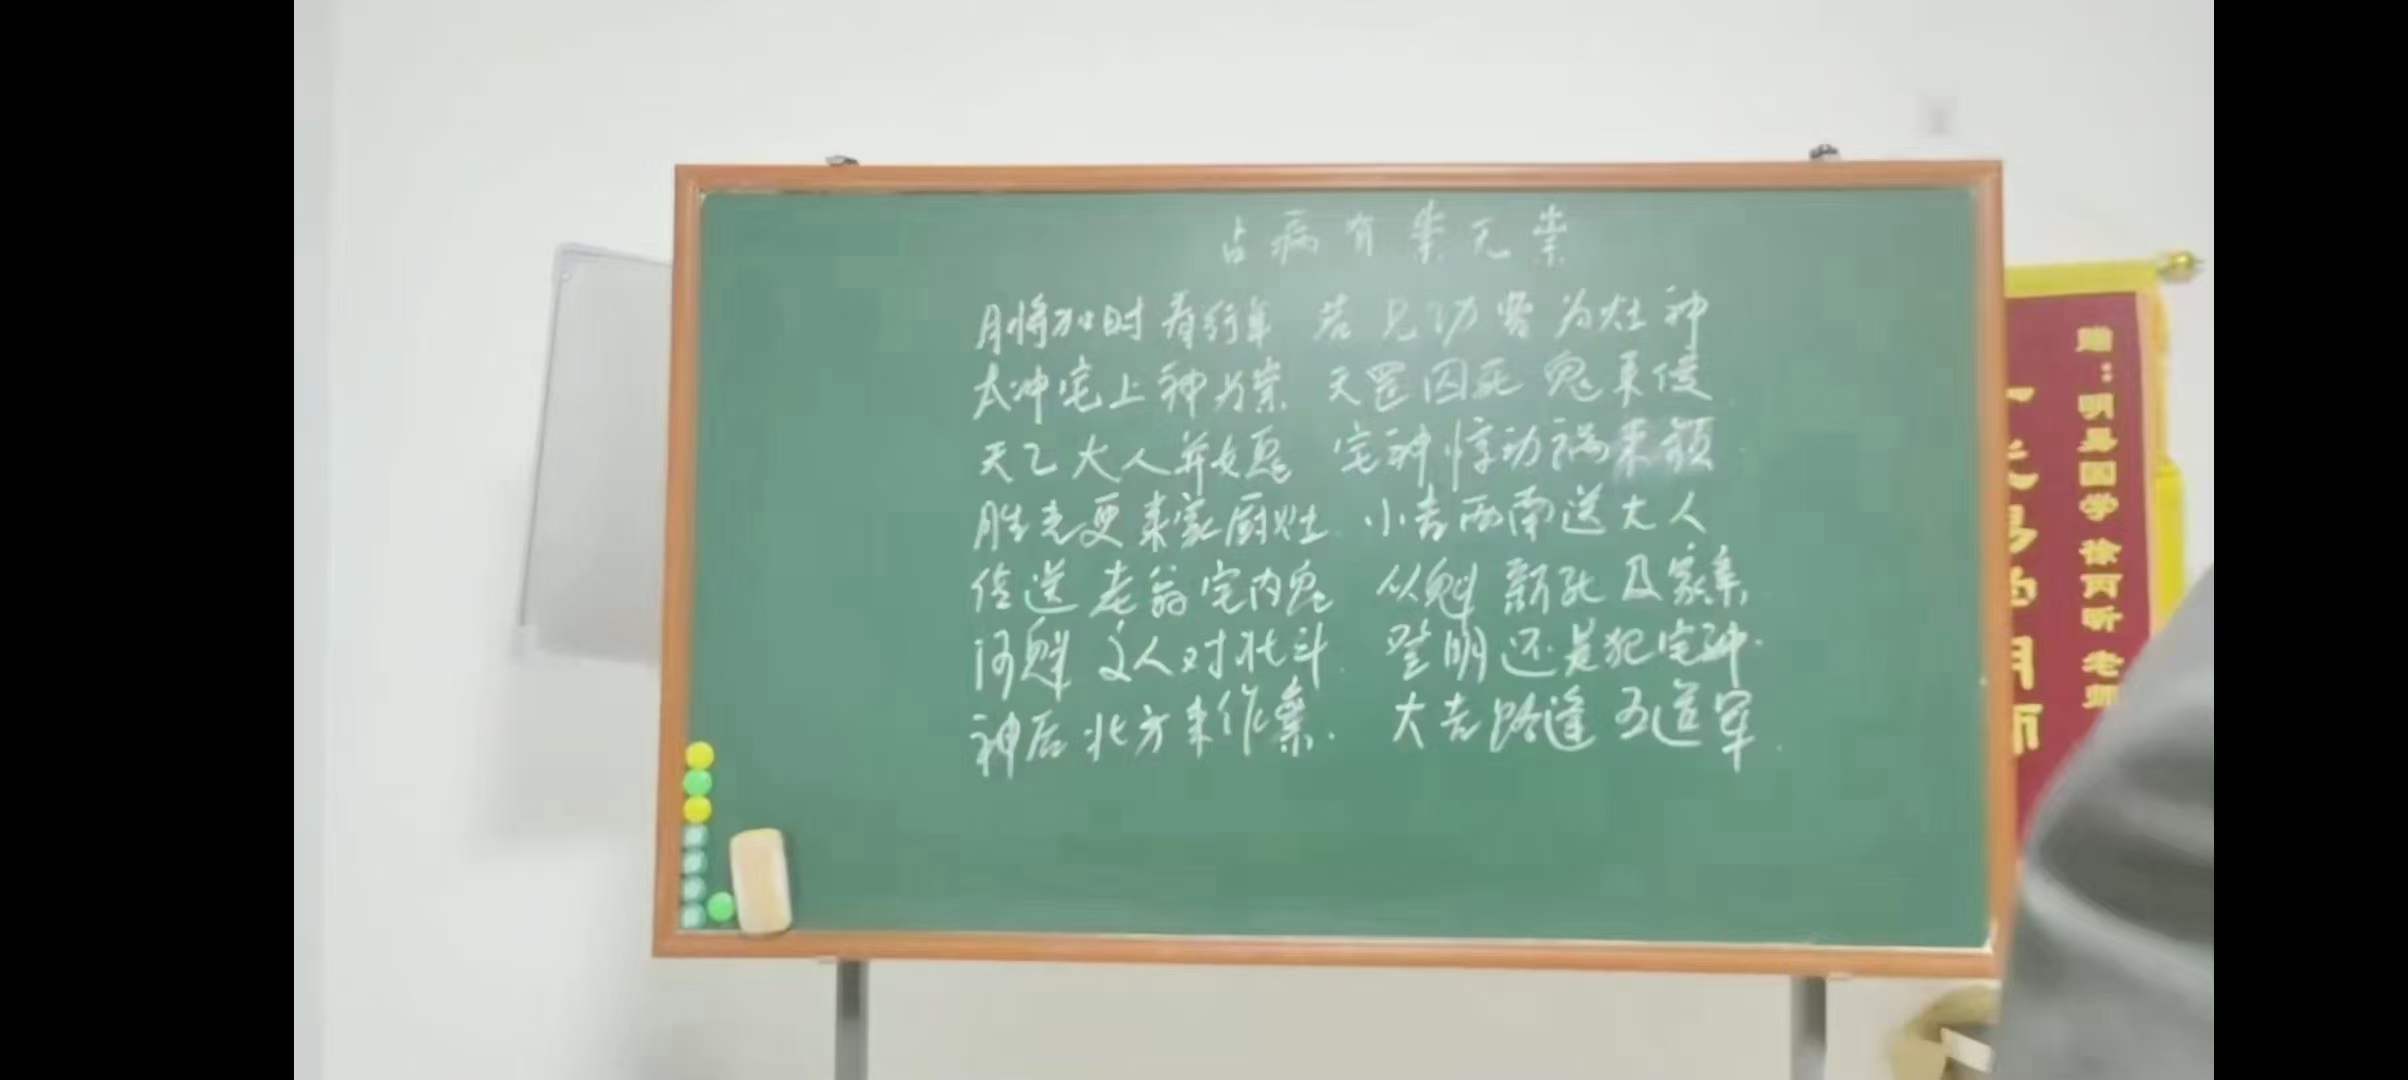 占病有祟无祟
月将加时看行年 若见功曹为灶神
太冲宅上神为祟 天罡囚死鬼来侵
天乙大人并女愿 宅神惊动祸来频
胜光更来家厨灶 小吉西南送大人
传送老翁宅内鬼 从魁新死及家亲
河魁丈人对北斗 登明还是犯宅神
神后北方来作祟 大吉路逢五道军
赠：明易国学 徐丙昕 老师
易的明师